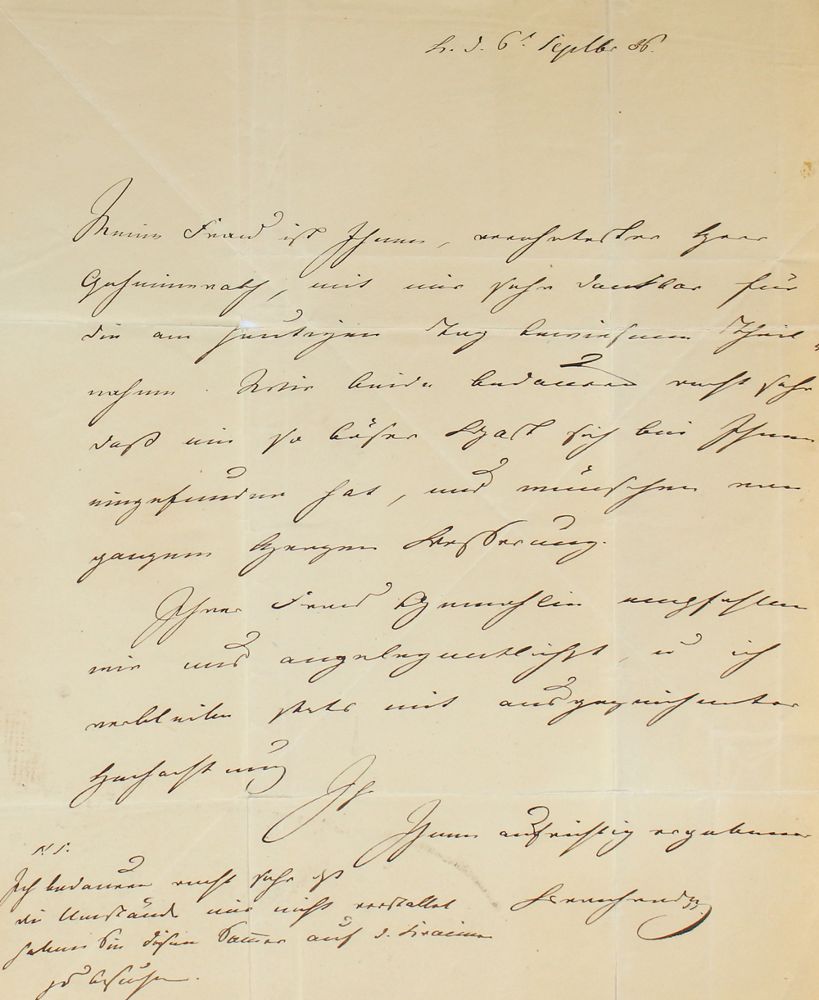 d. 6t Septbr 36.
Meine Frau ist Ihnen, verehrtester Herr
Geheimerath, mit mir sehr dankbar für
die am heutigen Tag bewiesene Theil
nahme. Wir beide bedauern recht sehr
daß ein so böser Gast sich bei Ihnen
eingefunden hat, und wünschen von
ganzem Herzen Besserung.
Ihrer Frau Gemahlin empfehlen
wir uns angelegentlichst, u ich
verbleibe stets mit ausgezeichneter
Hochachtung
Ihnen aufrichtig ergebener
Bernhard
N S.
Ich bedauere recht sehr
die Umstände mir nicht gestattet
haben Sie diesen Sommer auf d.
zu besuchen.